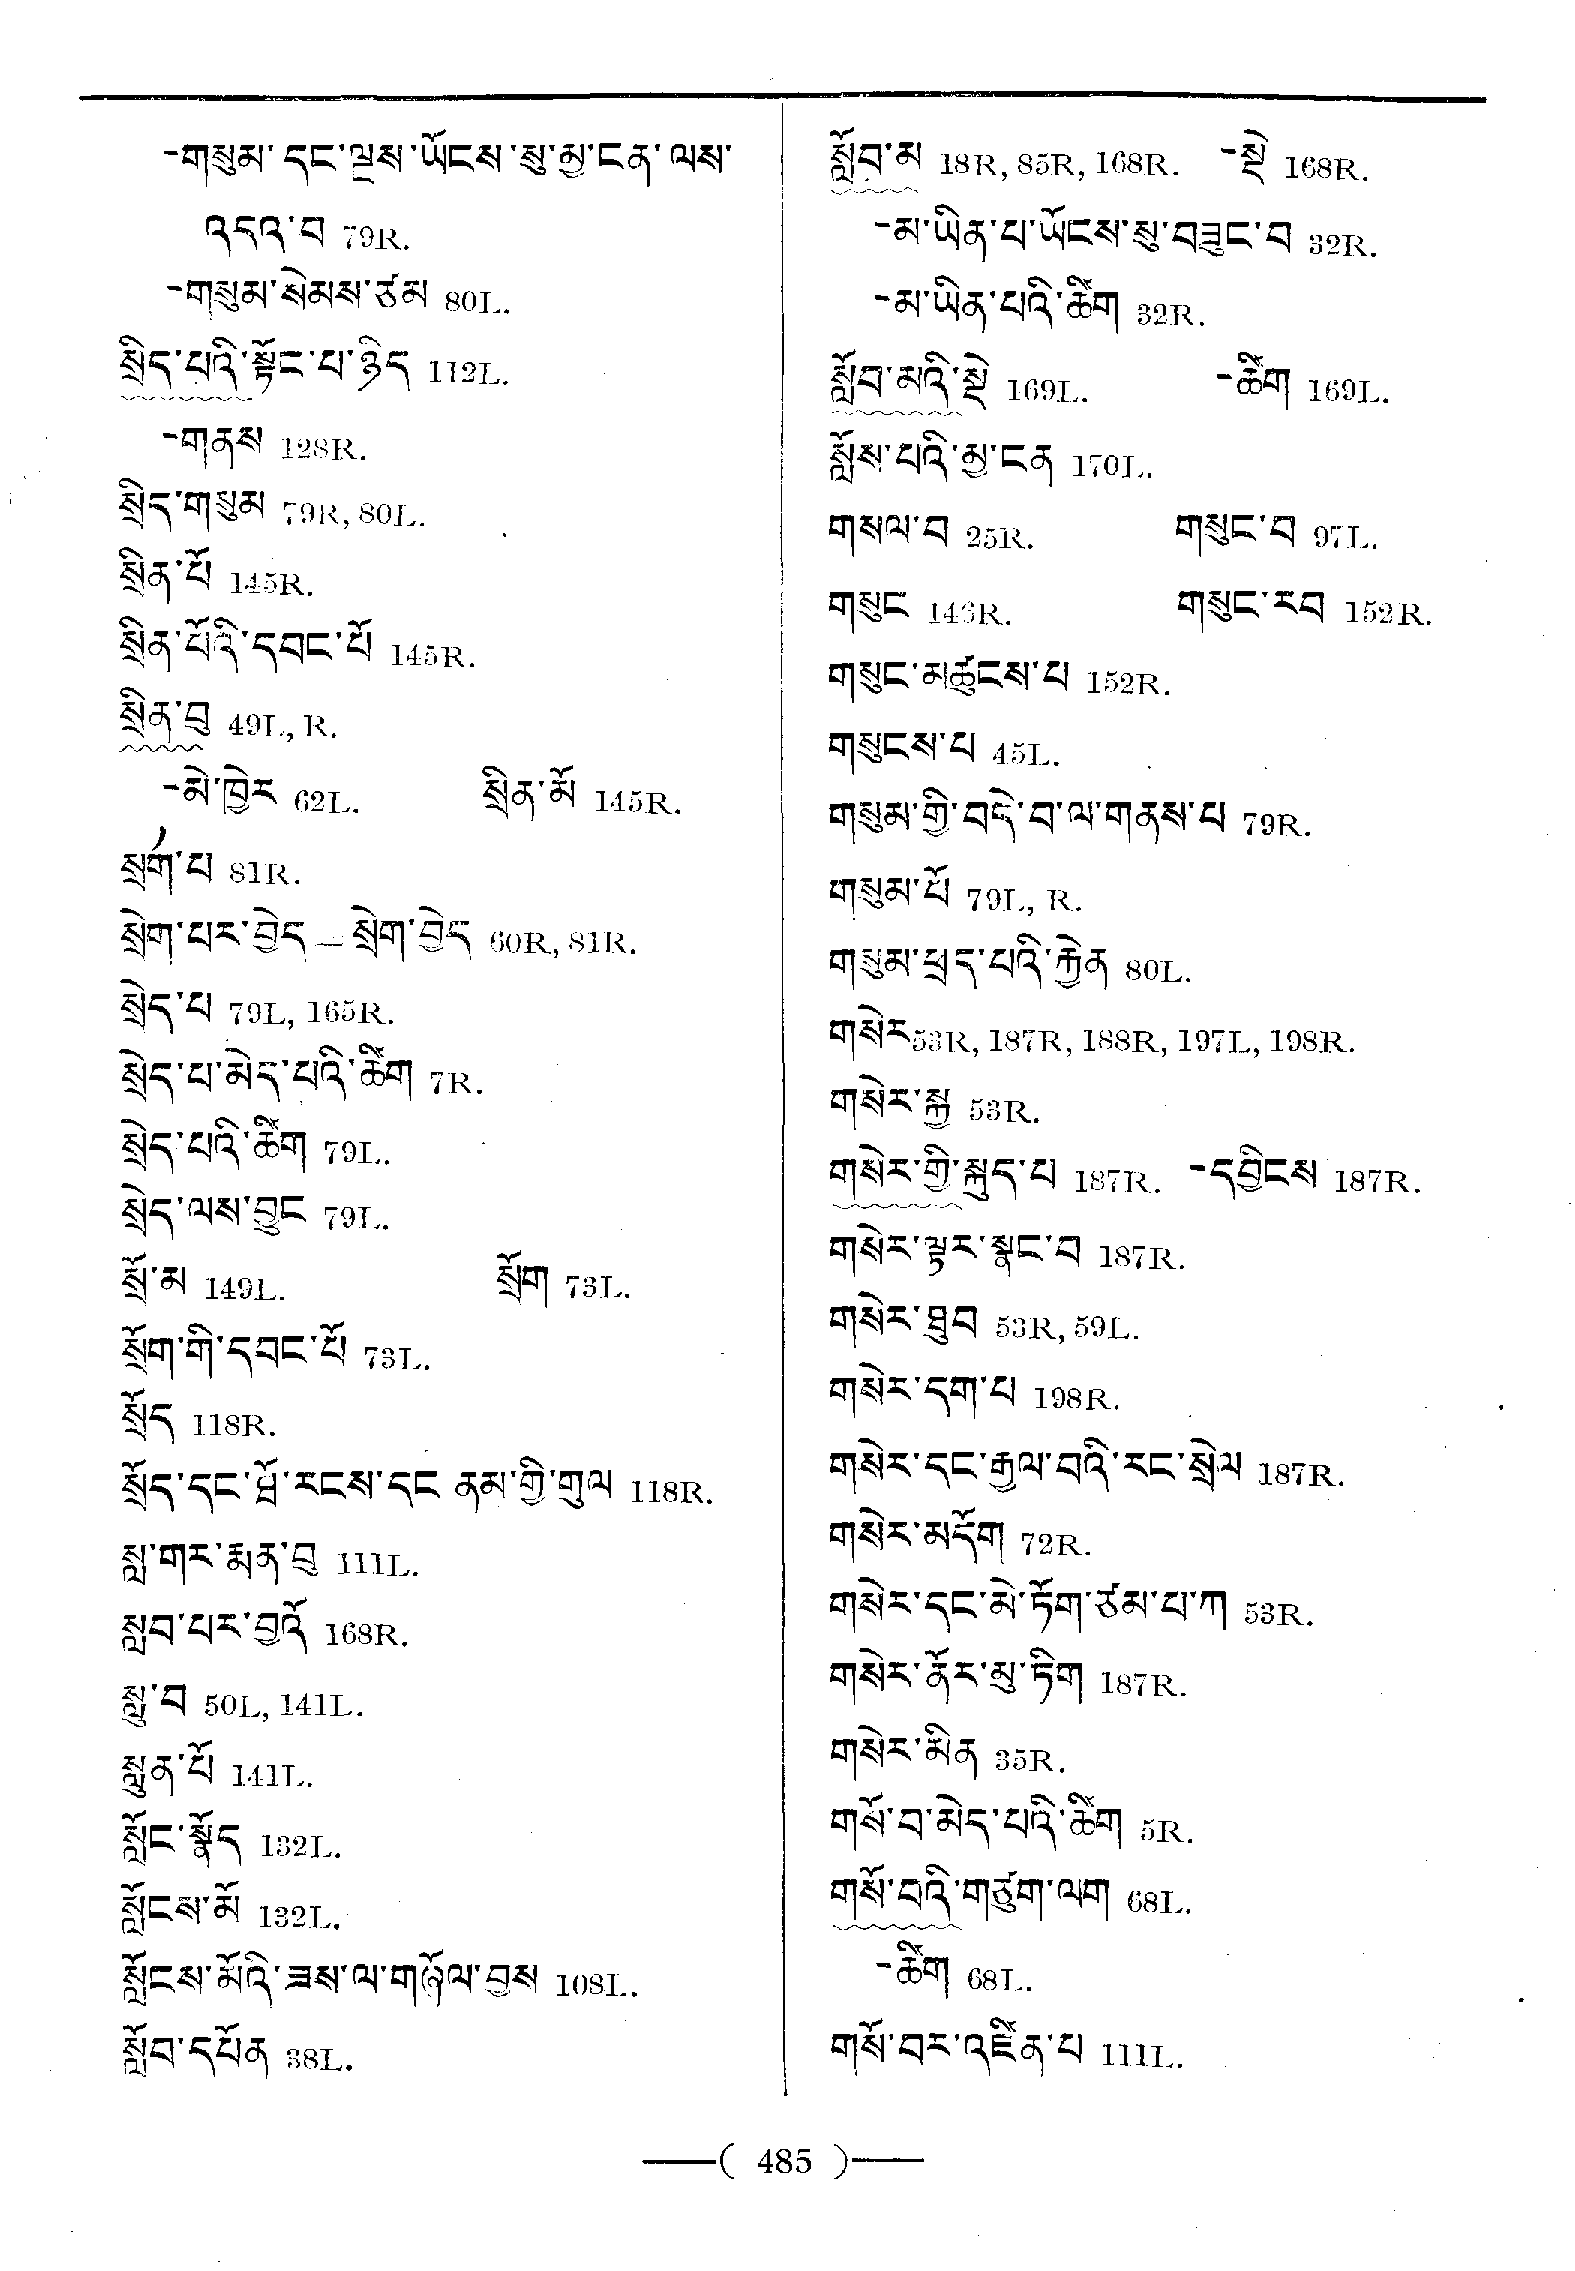 -གསུམ་དང་ལྡས་ཡོངས་སུ་མྱ་ངན་ལས་
འདའ་བ 79R.
-གསུམ་སེམས་ཙམ 80L.
སྲིད་པའི་སྟོང་པ་ཉིད 112L.
-གནས 128R.
སྲིད་གསུམ 79R, 80L.
སྲིན་པོ 145R.
སྲིན་པོའི་དབང་པོ 145R.
སྲིན་བུ 49L, R.
-མེ་ཁྱེར 62L. སྲིན་མོ 145R.
སྲེག་པ 81R.
སྲེག་པར་བྱེད — སྲེག་བྱེད 60R, 81R.
སྲེད་པ 79L, 165R.
སྲེད་པ་མེད་པའི་ཚིག 7R.
སྲེད་པའི་ཚིག 79L.
སྲེད་ལས་བྱུང 79L.
སྲོ་མ 149L. སྲོག 73L.
སྲོག་གི་དབང་པོ 73L.
སྲོད 118R.
སྲོད་དང་ཐོ་རངས་དང ནམ་གྱི་གུལ 118R.
སླ་གར་རྨན་བུ 111L.
སླབ་པར་བྱའོ 168R.
སླུ་བ 50L, 141L.
སླུན་པོ 141L.
སློང་སྣོད 132L.
སློངས་མོ 132L.
སློངས་མོའི་ཟས་ལ་གཉོལ་བྱས 108L.
སློབ་དཔོན 38L.
སློབ་མ 18R, 85R, 168R. -སྡེ 168R.
-མ་ཡིན་པ་ཡོངས་སུ་བཟུང་བ 32R.
-མ་ཡིན་པའི་ཚིག 32R.
སློབ་མའི་སྡེ 169L. -ཚིག 169L.
སློས་པའི་མྱ་ངན 170L.
གསལ་བ 25R. གསུང་བ 97L.
གསུང 146R. གསུང་རབ 152R.
གསུང་མཚུངས་པ 152R.
གསུངས་པ 45L.
གསུམ་གྱི་བདེ་བ་ལ་གནས་པ 79R.
གསུམ་པོ 79L, R.
གསུམ་ཕྲད་པའི་རྐྱེན 80L.
གསེར 53R, 187R, 188R, 197L, 198R.
གསེར་སྐྱ 53R.
གསེར་གྱི་སྐུད་པ 187R. -དབྱིངས 187R.
གསེར་ལྟར་སྣང་བ 187R.
གསེར་ཐུབ 53R, 59L.
གསེར་དག་པ 198R.
གསེར་དང་རྒྱལ་བའི་རང་སྲེལ 187R.
གསེར་མདོག 72R.
གསེར་དང་མེ་ཏོག་ཙམ་པ་ཀ 53R.
གསེར་ནོར་མུ་ཏིག 187R.
གསེར་མིན 35R.
གསོ་བ་མེད་པའི་ཚིག 5R.
གསོ་བའི་གཙུག་ལག 68L.
-ཚིག 68L.
གསོ་བར་འཛིན་པ 111L.
( 485 )